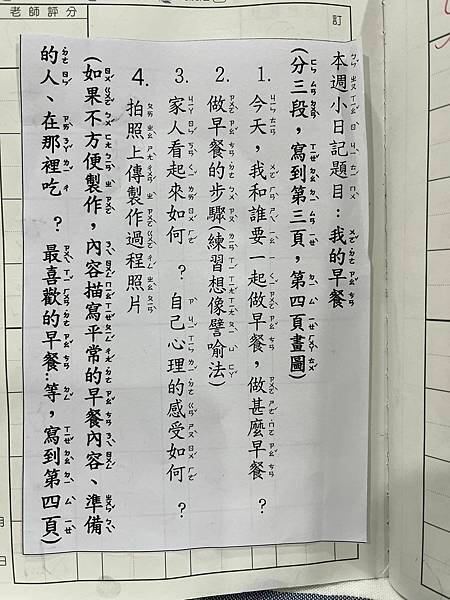 本週小日記題目：我的早餐
(分三段，寫到第三頁，第四頁畫圖)
1. 今天，我和誰要一起做早餐，做甚麼早餐？
2. 做早餐的步驟(練習想像譬喻法)
3. 家人看起來如何？自己心理的感受如何？
4. 拍照上傳製作過程照片
(如果不方便製作，內容描寫平常的早餐內容、準備
的人、在那裡吃？最喜歡的早餐…等，寫到第四頁)
老師評分
訂